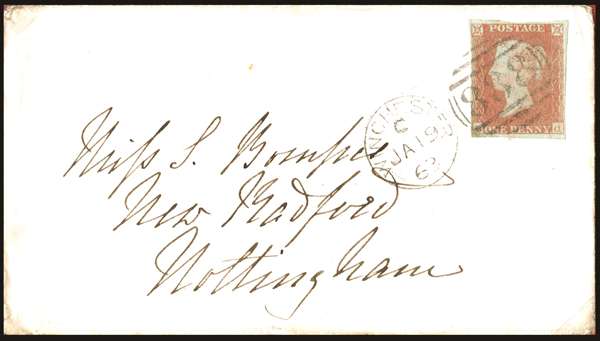 POSTAGE
ONE PENNY
WINCHESTER
C
JA 19
63
Miss S.
New Radford
Nottingham